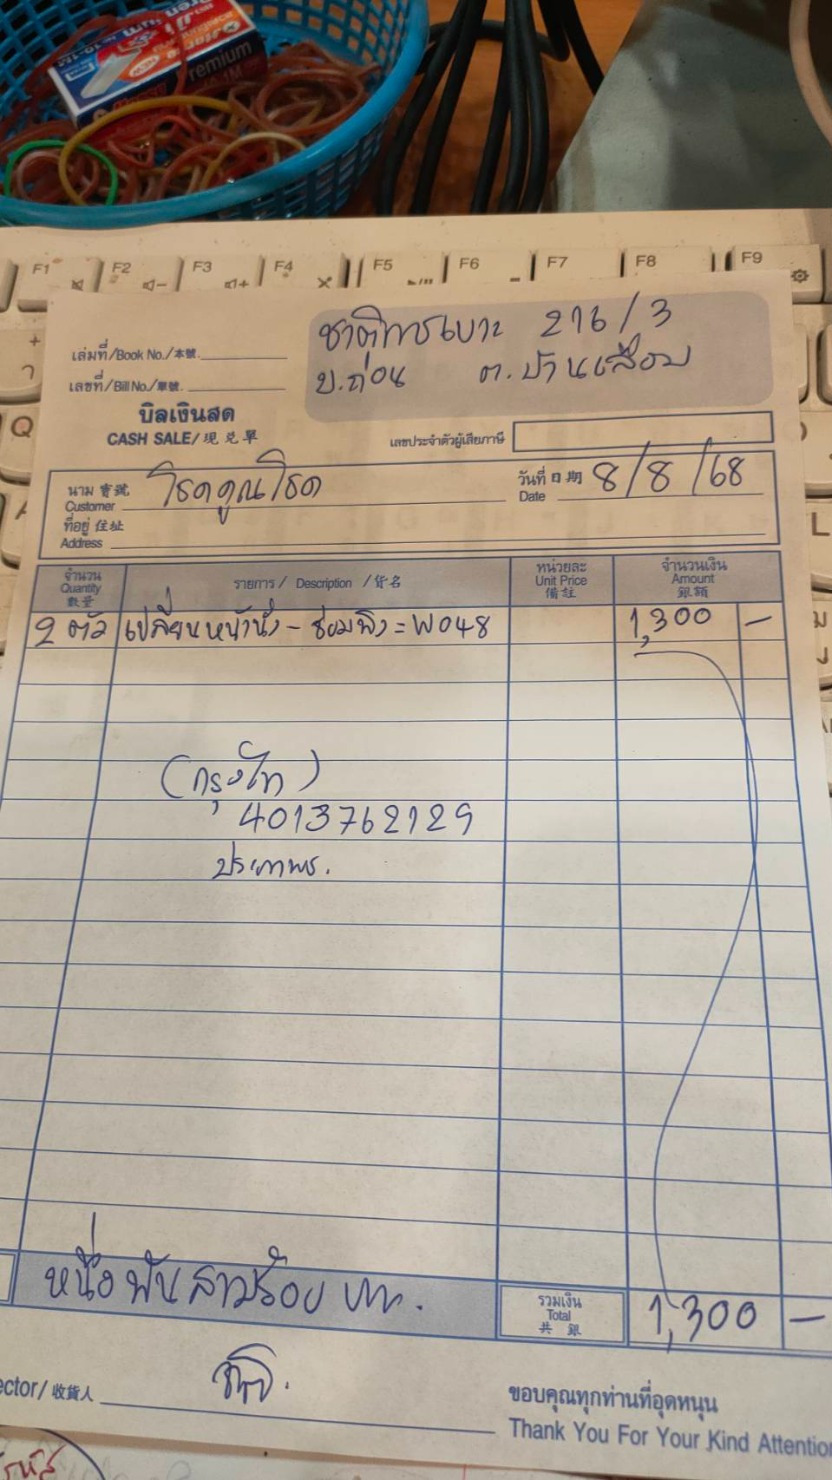 remium
F1 F2 F3 F4 F5 F6 F7 F8 F9
ชาติการเบาะ 216/3
บ.ถ่อน ต.บ้านเลื่อม
เล่มที่/Book No./本號.
เลขที่/Bill No./單號.
บิลเงินสด
CASH SALE/現兌單
เลขประจำตัวผู้เสียภาษี
นาม 寳號 โชคคูณโชค
Customer
วันที่ 日期 8/8/68
Date
ที่อยู่ 住址
Address
จำนวน
Quantity
數量
รายการ / Description / 貨名
หน่วยละ
Unit Price
備註
จำนวนเงิน
Amount
銀額
2 ตัว เปลี่ยนหน้านั่ง - ซ่อมพิง = W048 1,300 -
(กรุงไท)
4013762129
ประภาพร.
หนึ่งพันสามร้อย บาท.
รวมเงิน
Total
共銀
1,300 -
ector/收貨人
ขอบคุณทุกท่านที่อุดหนุน
Thank You For Your Kind Attention